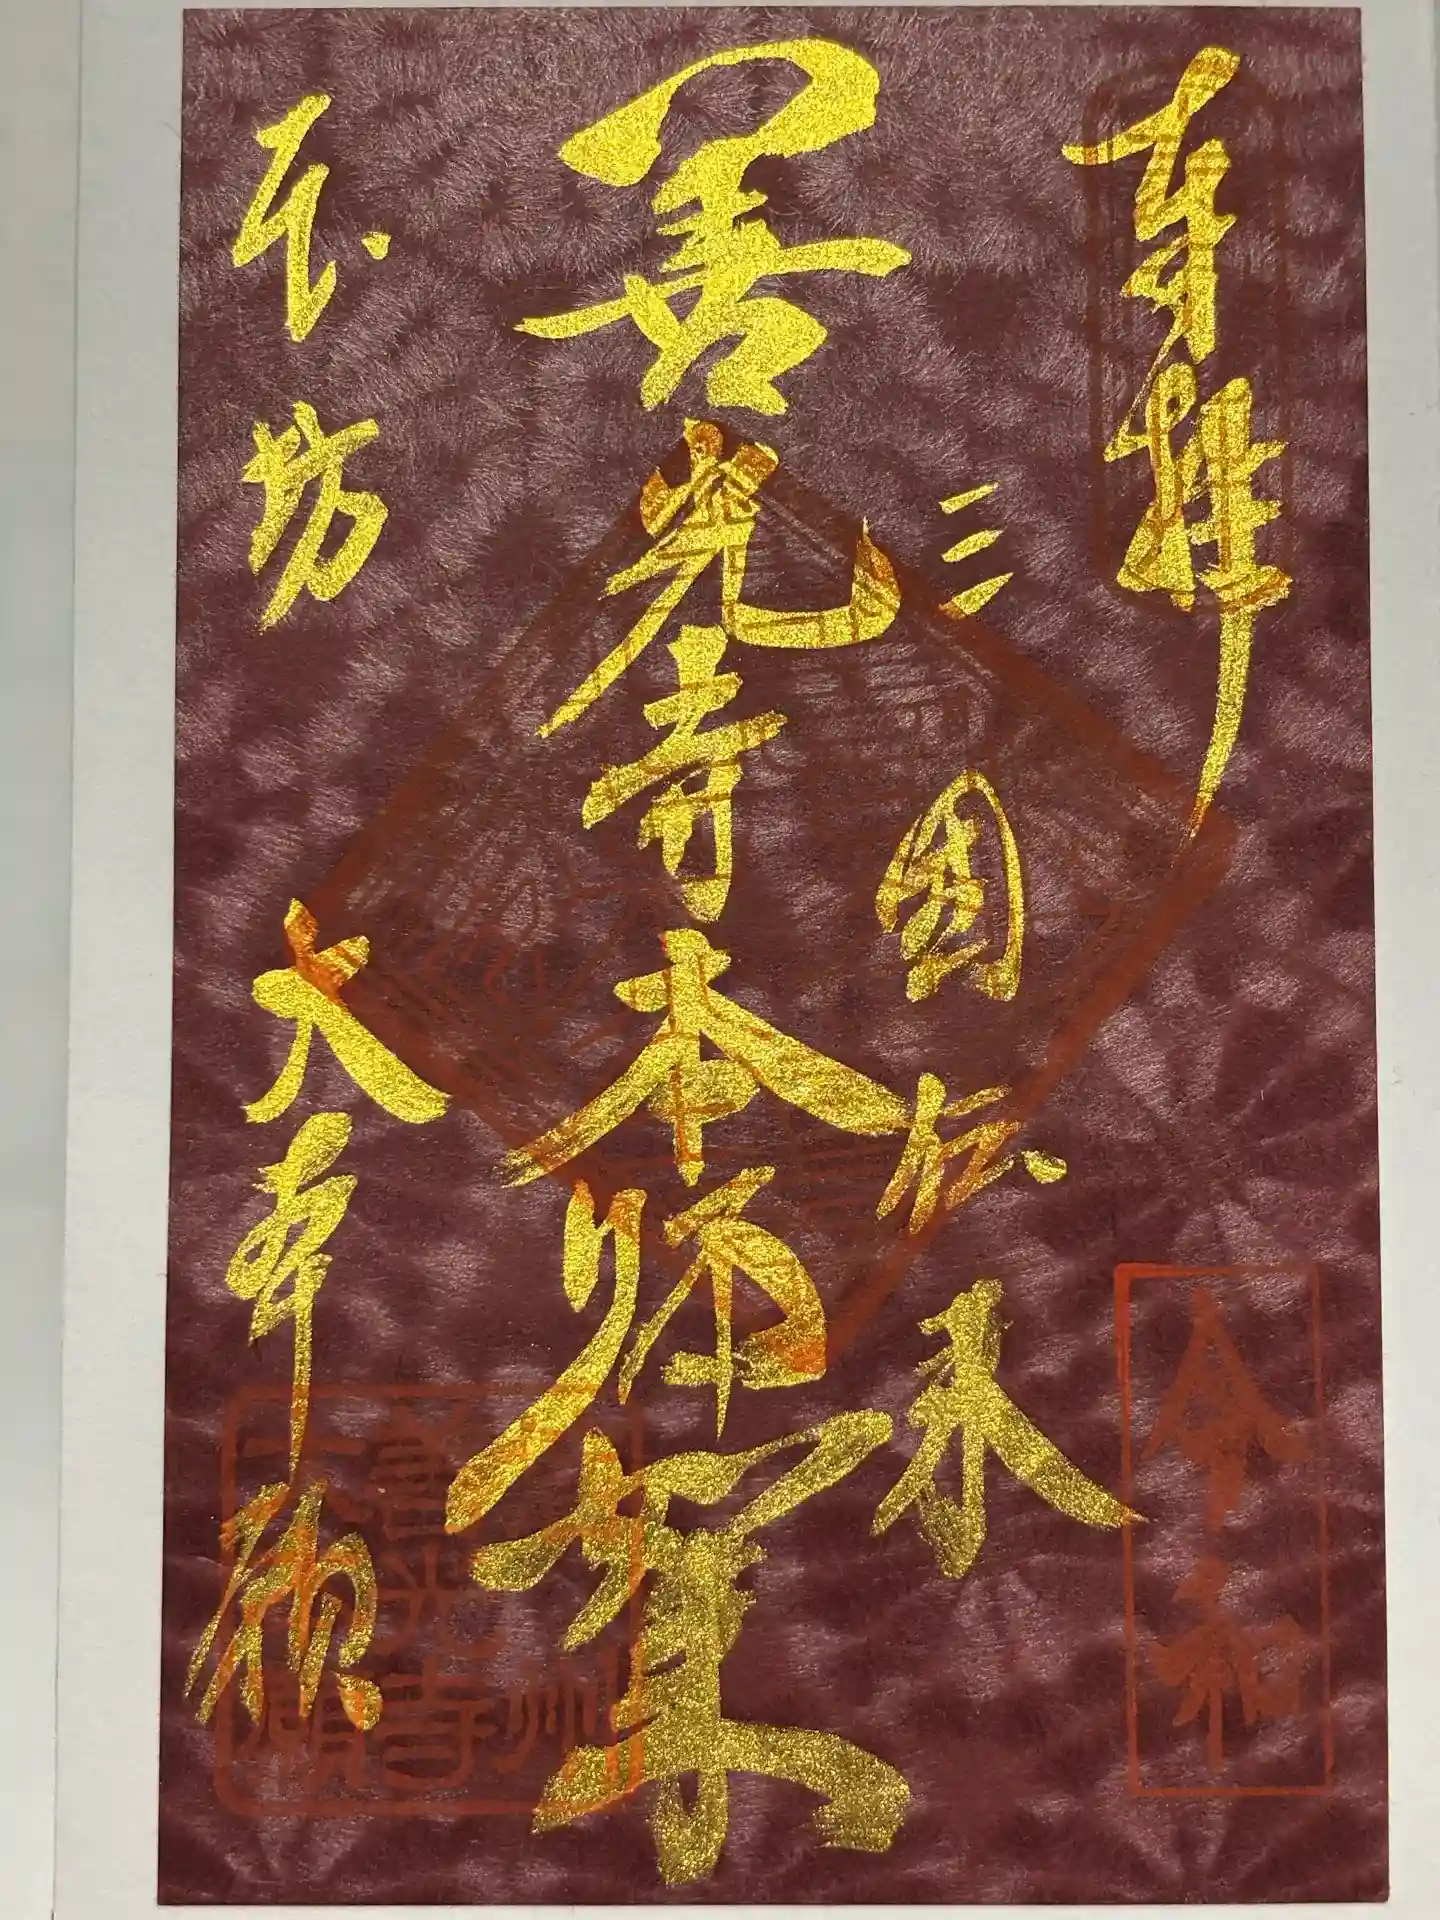 奉拝
三國伝来
善光寺本師如来
本坊
大本願
令和
善光寺